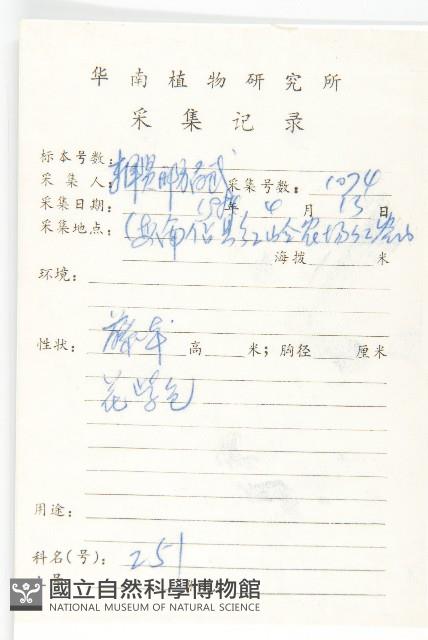 华南植物研究所
采集记录
标本号数:
采集人: 采集号数: 1074
采集日期: 年 4 月 13 日
采集地点: 县红岭农场红岩山
海拨 米
环境:
性状: 藤本 高 米; 胸径 厘米
花紫色
用途:
科名(号): 251
國立自然科學博物館
NATIONAL MUSEUM OF NATURAL SCIENCE